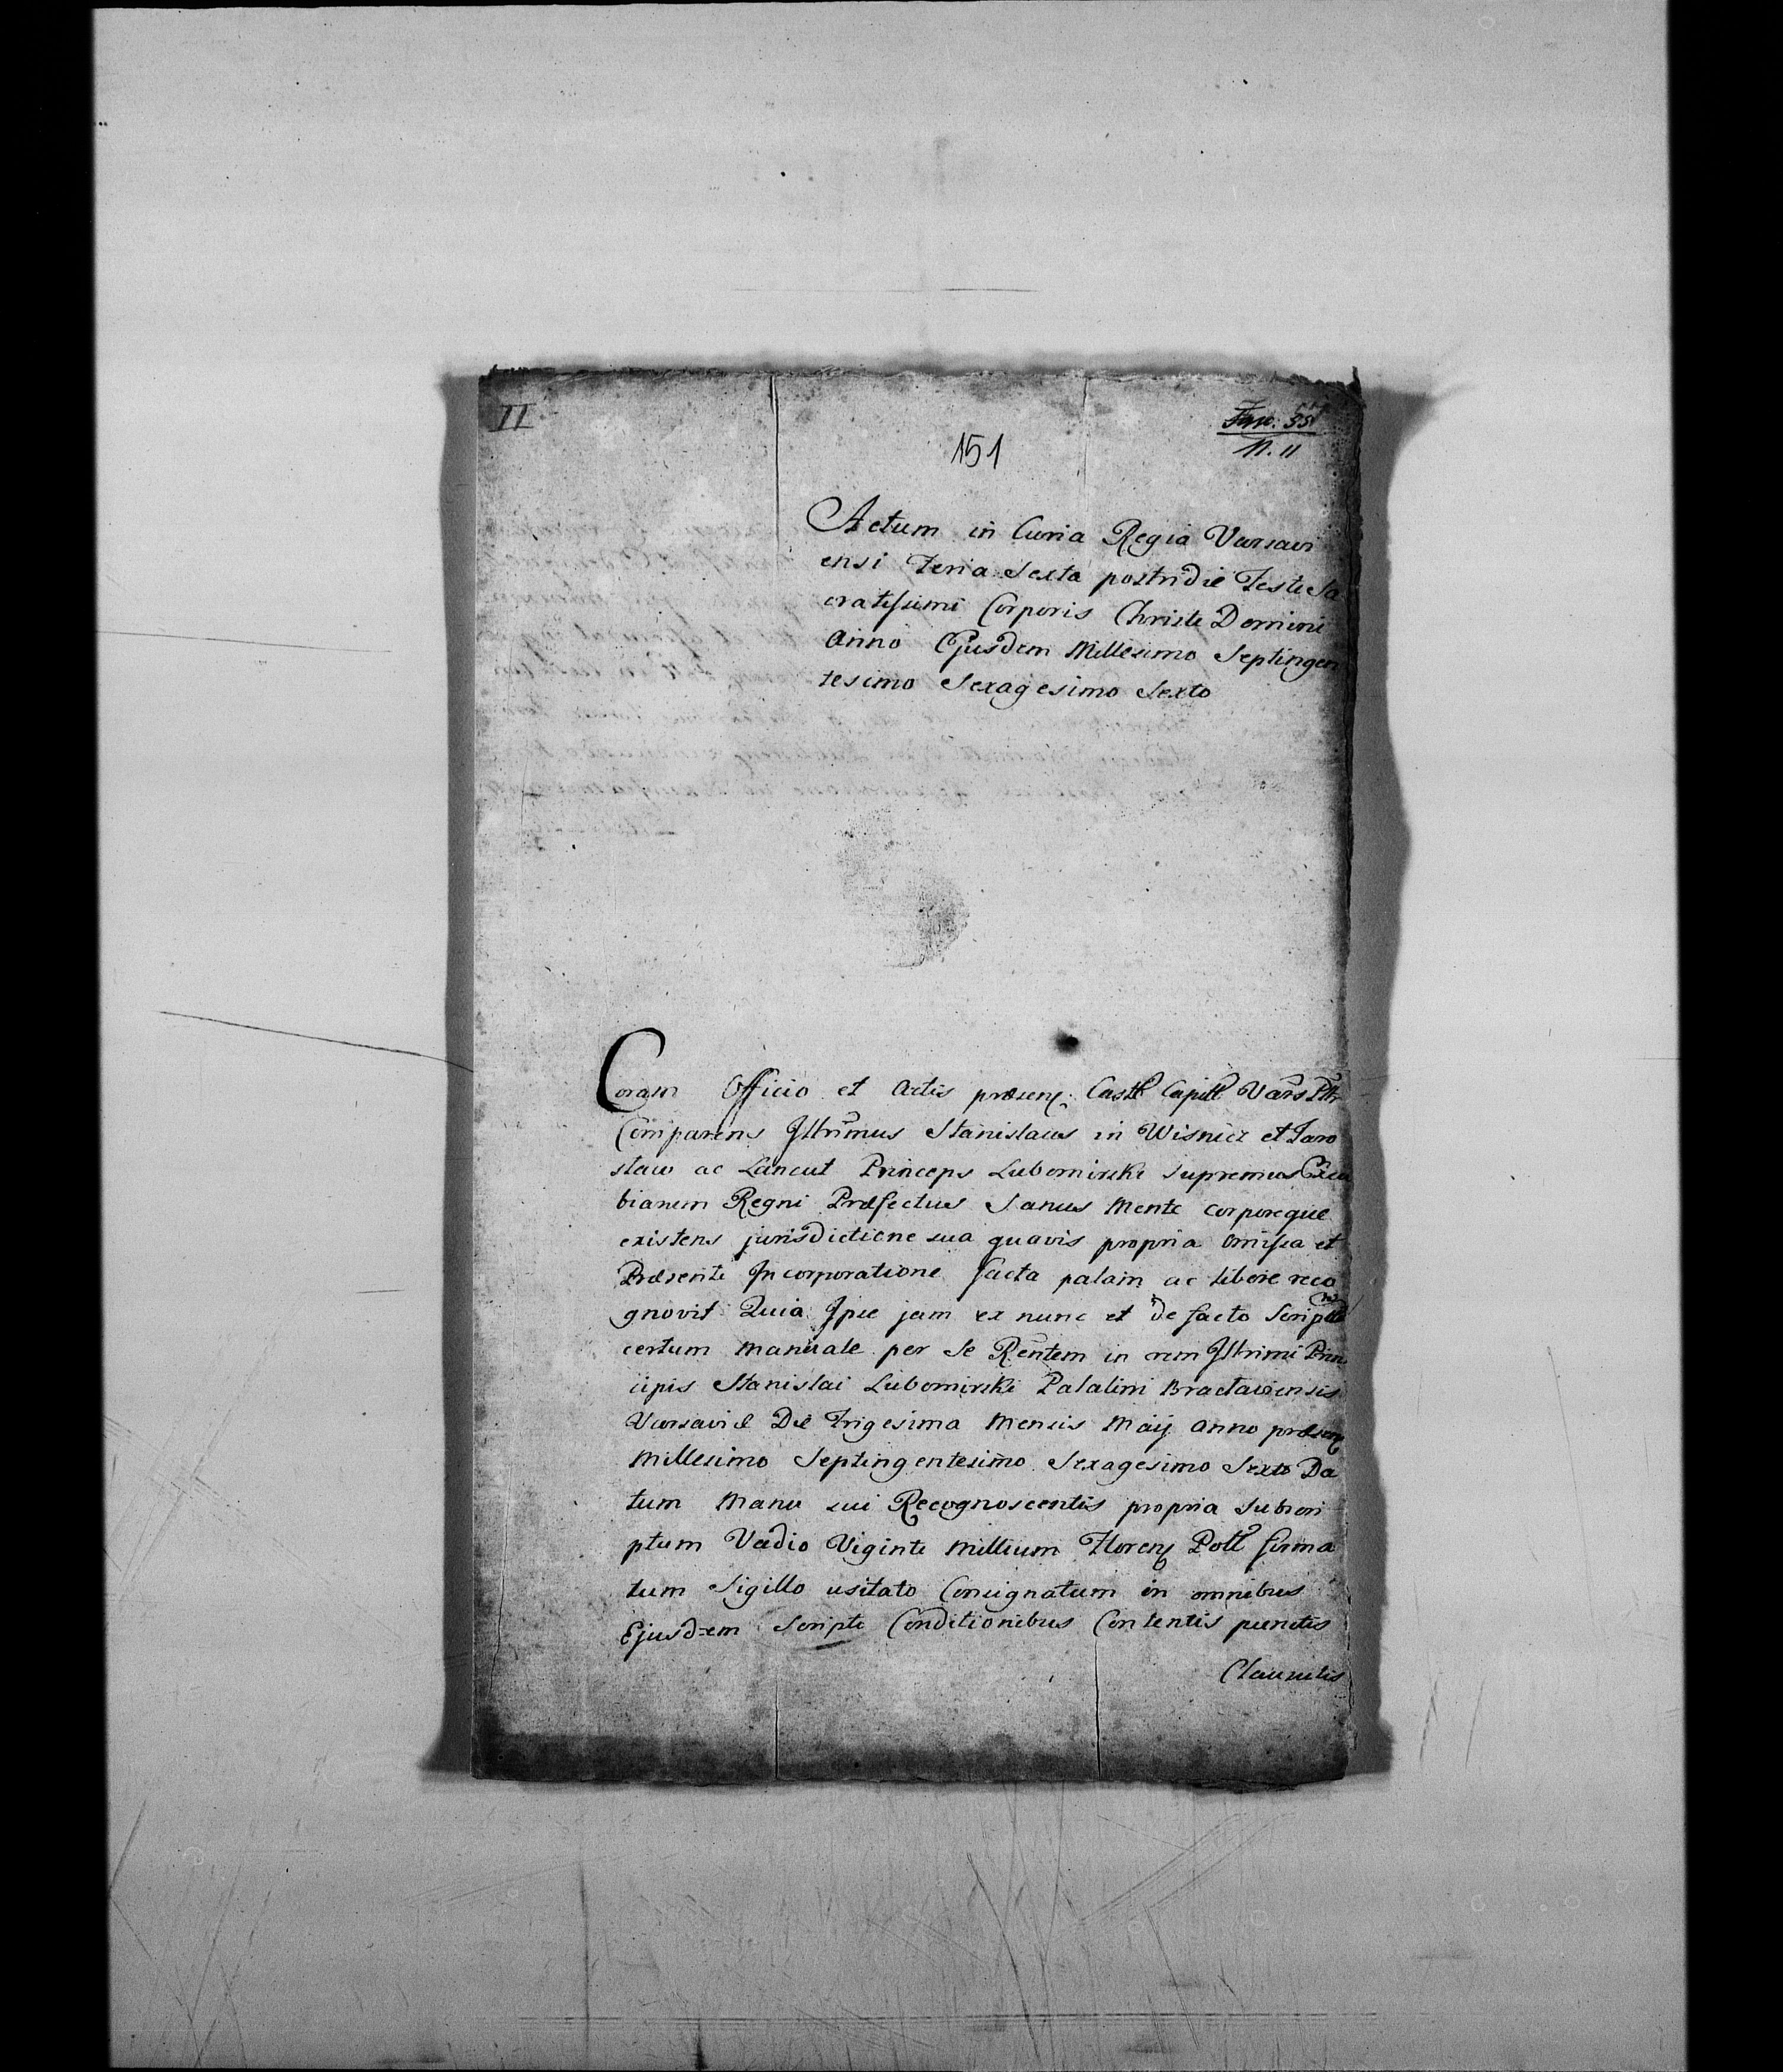 II
Fasc. 55
N. 11
151
Actum in Curia Regia Varsavi
ensi Feria Sexta postridie Festi Sa
cratissimi Corporis Christi Domini
Anno Ejusdem Millesimo Septingen
tesimo Sexagesimo Sexto
Coram Officio et Actis præsenꝫ Castr Capitl Vars Ptr
Comparens Illrimus Stanislaus in Wisnicz et Jaro
slaw ac Lancut Princeps Lubomirski Supremus Excu
biarum Regni Præfectus Sanus Mente corporeque
existens jurisdictione sua quavis propria omissa et
Præsenti Incorporatione facta palam ac libere reco
gnovit Quia Ipse jam ex nunc et de facto Scriptum
certum manuale per Se Rentem in rem Illrimi Prin
cipis Stanislai Lubomirski Palatini Braclaviensis
Varsaviæ Die Trigesima Mensis Maij Anno præsenꝫ
Millesimo Septingentesimo Sexagesimo Sexto Da
tum Manu sui Recognoscentis propria Subscri
ptum Vadio Viginti Millium Florenꝫ Poll firma
tum Sigillo usitato Consignatum in omnibus
Ejusdem Scripti Conditionibus Contentis punctis
Clausulis